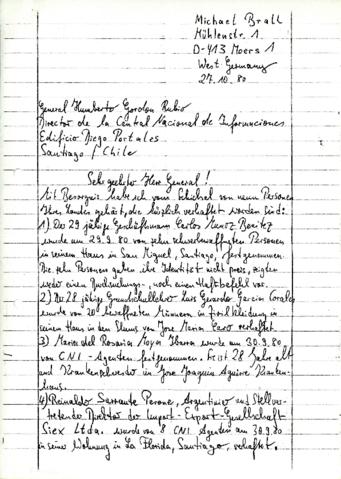 Michael Brall
Mühlenstr. 1
D-413 Moers 1
West Germany
27.10.80
General Humberto Gordon Rubio
Director de la Central Nacional de Informaciones
Edificio Diego Portales
Santiago / Chile
Sehr geehrter Herr General!
Mit Besorgnis habe ich vom Schicksal von neun Personen
Ihres Landes gehört, die kürzlich verhaftet worden sind:
1) Der 29 jährige Geschäftsmann Carlos Munoz Benitez
wurde am 29.9.80 von zehn schwerbewaffneten Personen
in seinem Haus in San Miguel, Santiago, festgenommen.
Die zehn Personen gaben ihre Identität nicht preis, zeigten
weder einen Durchsuchungs-, noch einen Haftbefehl vor.
2) Der 28 jährige Grundschullehrer Luis Gerardo Garcia Corales
wurde von 20 bewaffneten Männern in Zivilkleidung in
seinem Haus in den Slums von Jose Maria Caro verhaftet.
3) Maria del Rosario Moya Ibarra wurde am 30.9.80
von CNI-Agenten festgenommen. Sie ist 28 Jahre alt
und Krankenschwester im Jose Joaquin Aguirre Kranken-
haus.
4) Reinaldo Sarrante Perone, Argentinier und Stellver-
tretender Direktor der Import-Export-Gesellschaft
Siex Ltda. wurde von 8 CNI Agenten am 30.9.80
in seiner Wohnung in La Florida, Santiago, verhaftet.